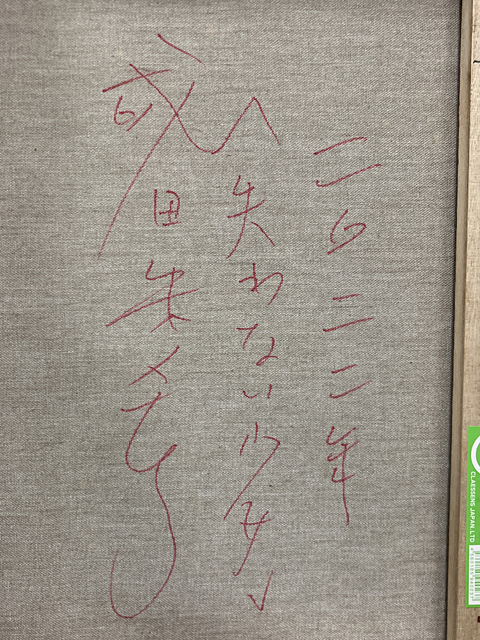 二〇二二年
〈失わない少女〉
成田朱希
CLAESSENS JAPAN.LTD